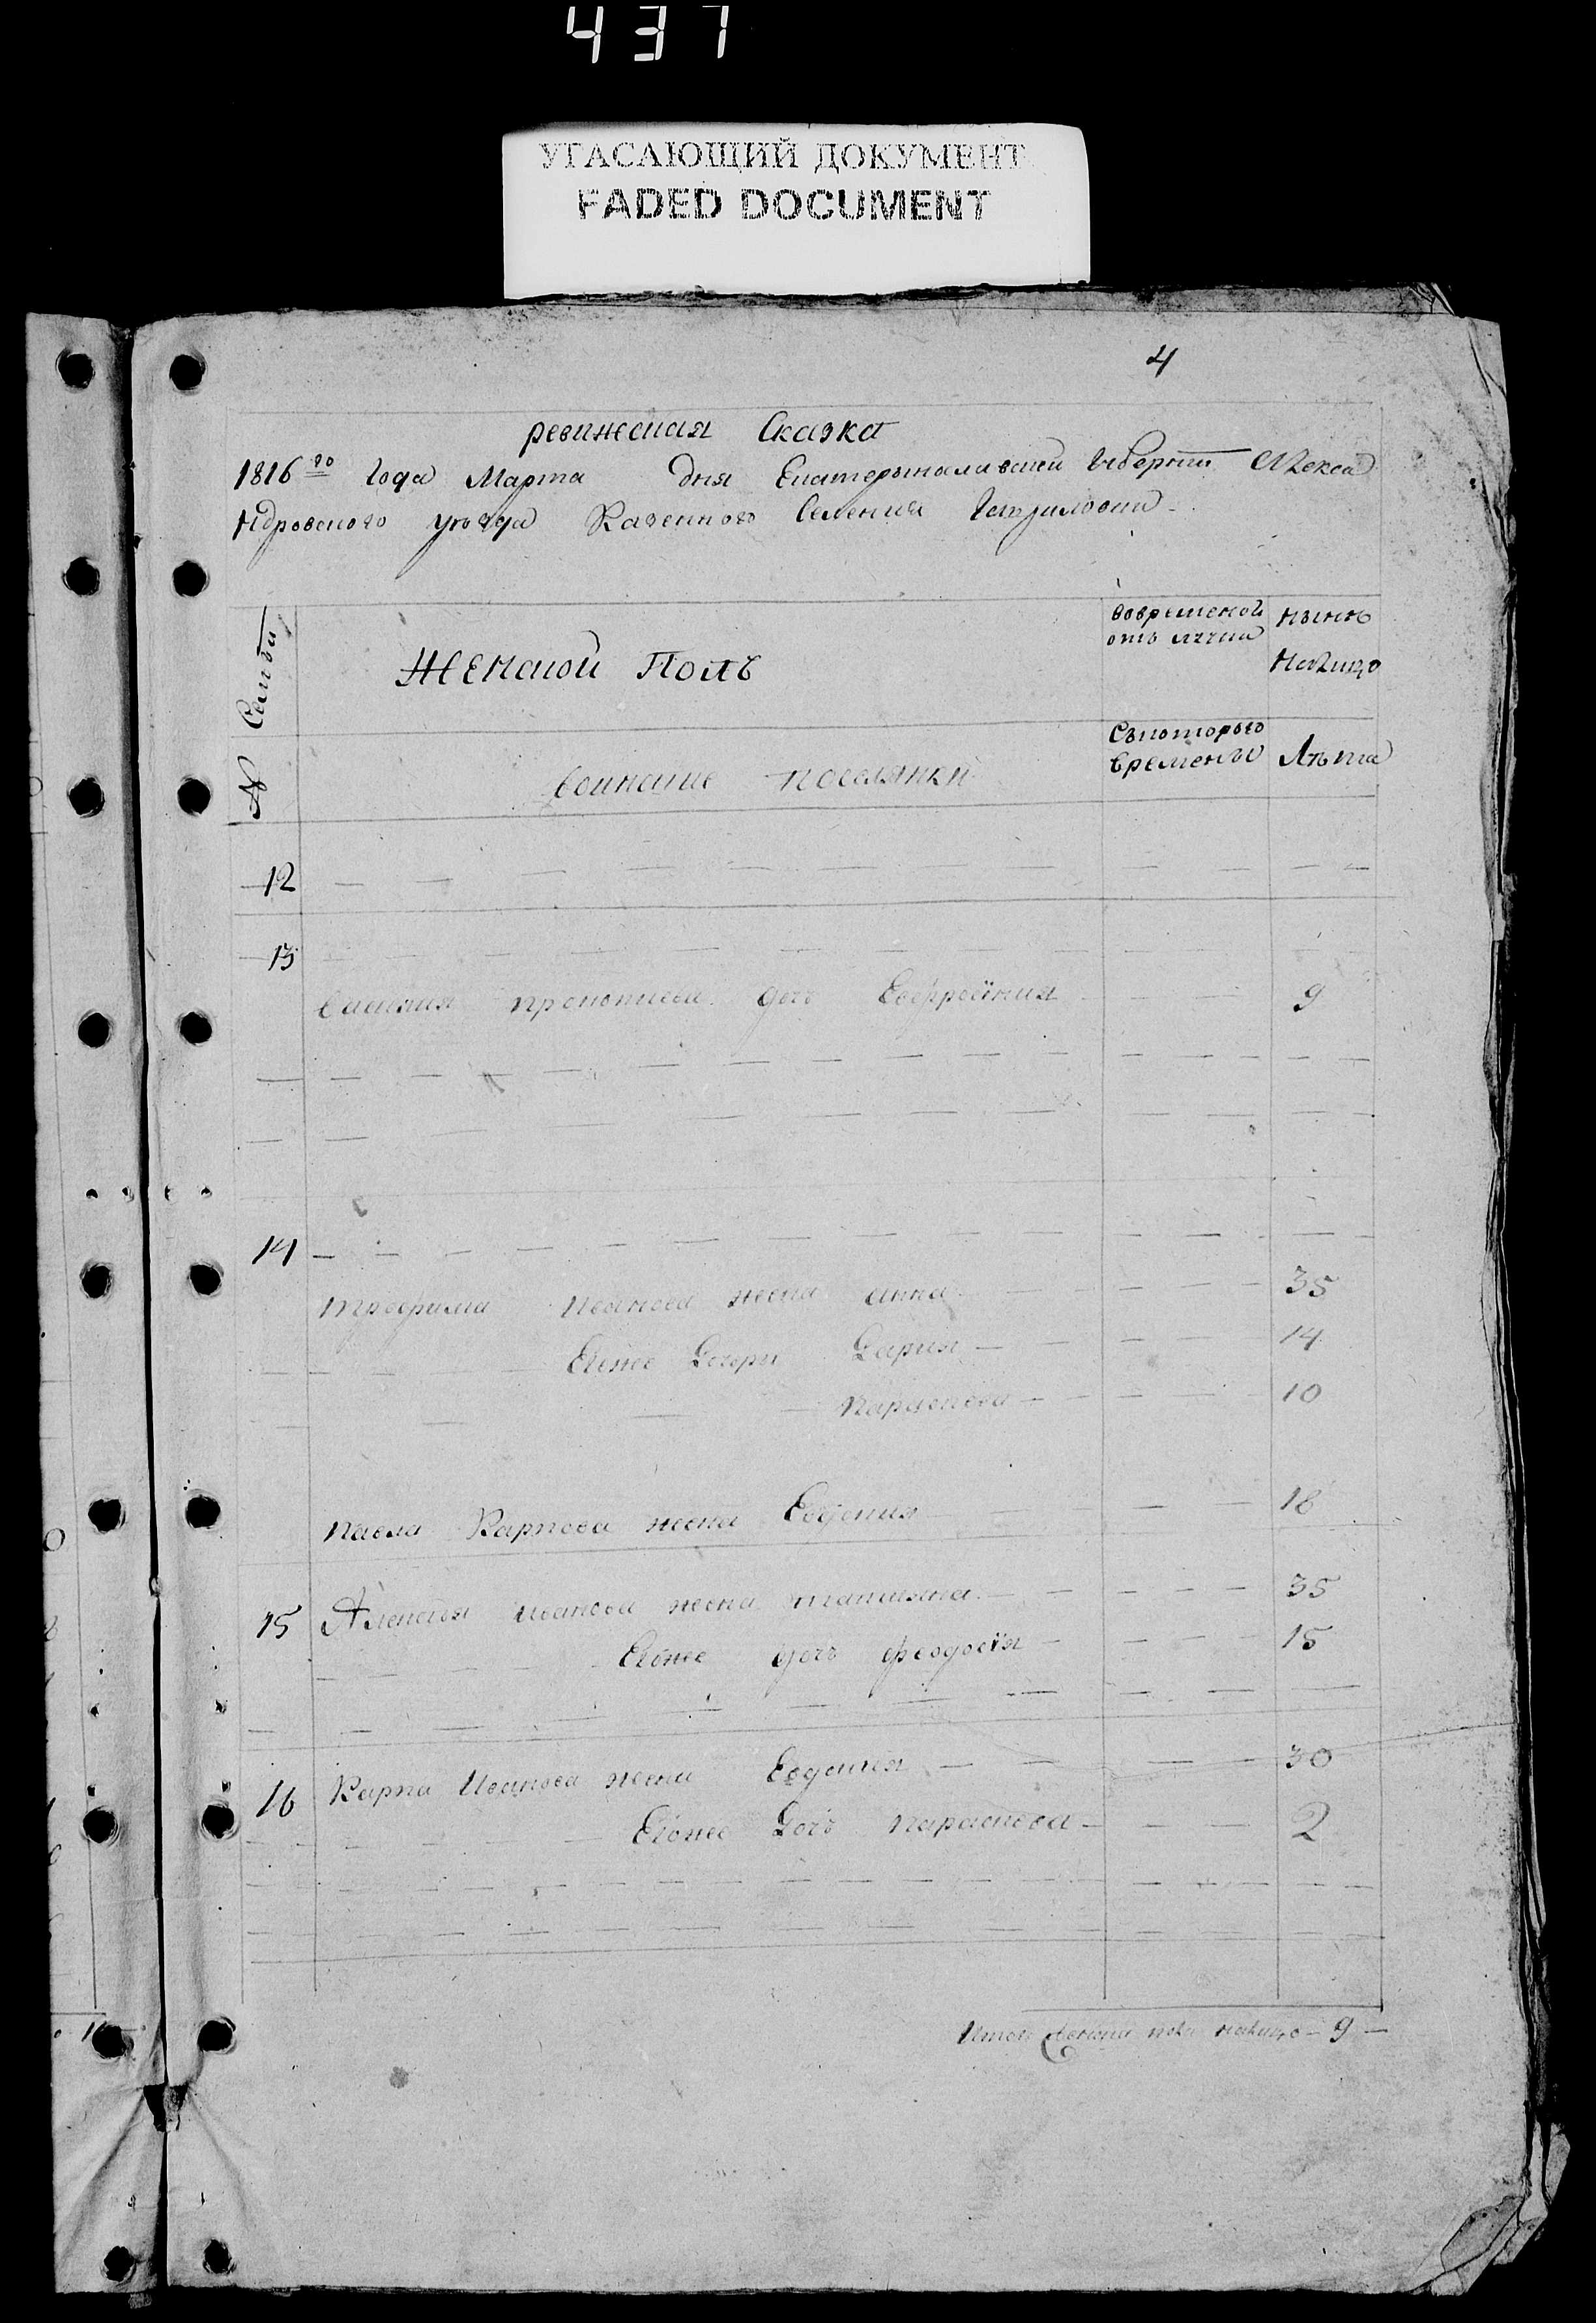 437
УГАСАЮЩИЙ ДОКУМЕНТ
FADED DOCUMENT
4
ревижская Сказка
1816го Года Марта дня Екатеринославской Губернии Алекса
ндровского уезда Казенного Селения
№ Семьи
Женской Полъ
вовременой
отъ лучки
нынѣ
Налицо
поселянки
Съкоторого
времены
Лѣта
12
13
прокопиева дочь Евфросиния 9
14
трофима Иванова жена анна 35
Егоже Дочери Дария 14
параскева 10
павла Карпова жена Евдокия 18
15 Алексея иванова жена татияна 35
Егоже дочь феодосия 15
16 Карпа Иванова жена Евдокия 30
Егоже Дочь параскева 2
Итого женска пола налицо - 9 -